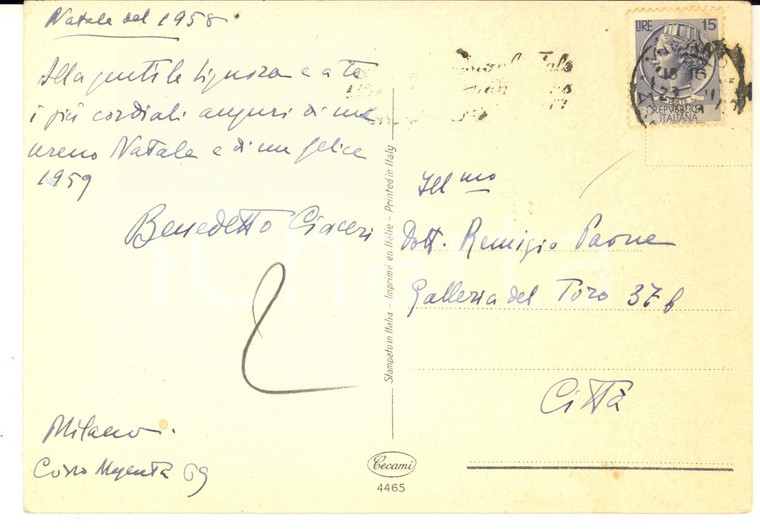 Natale del 1958
Alla gentile Signora e a te
i più cordiali auguri di un
sereno Natale e di un felice
1959
Benedetto Ciaceri
Milano.
Corso Magenta 69
Stampato in Italia - Imprimé en Italie - Printed in Italy
Cecami
4465
LIRE 15
REPUBBLICA
ITALIANA
Ill mo
Dott. Remigio Paone
Galleria del Toro 37b
Città